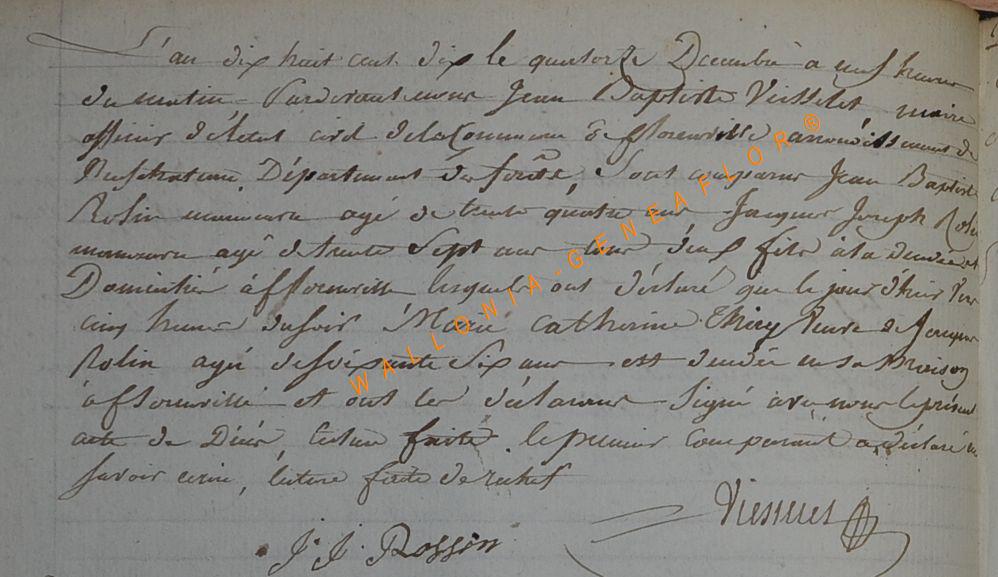 L'an dix huit cent dix le quatorze Décembre à neuf heures
du matin Pardevant nous Jean Baptiste maire
officier de l'état civil de la Commune de fflorenville arrondissement de
Neufchateau, Département des forêts, Sont comparus Jean Baptiste
Rolin manoeuvre agé de trente quatre ans Jacques Joseph
manoeuvre agé de trente Sept ans tous deux fils à la
Domiciliés à fflorenville lesquels ont déclaré que le jour d'hier
cinq heures du soir Marie Catherine Thiry veuve de Jacques
Rolin agée de soixante Six ans est décédée en sa Maison
à fflorenville et ont les déclarans Signé avec nous le présent
acte de Décès lecture faite le premier Comparant a déclaré ne
savoir ecrire, lecture faite de
J. J. Rossin
WALLONIA-GENEAFLOR©